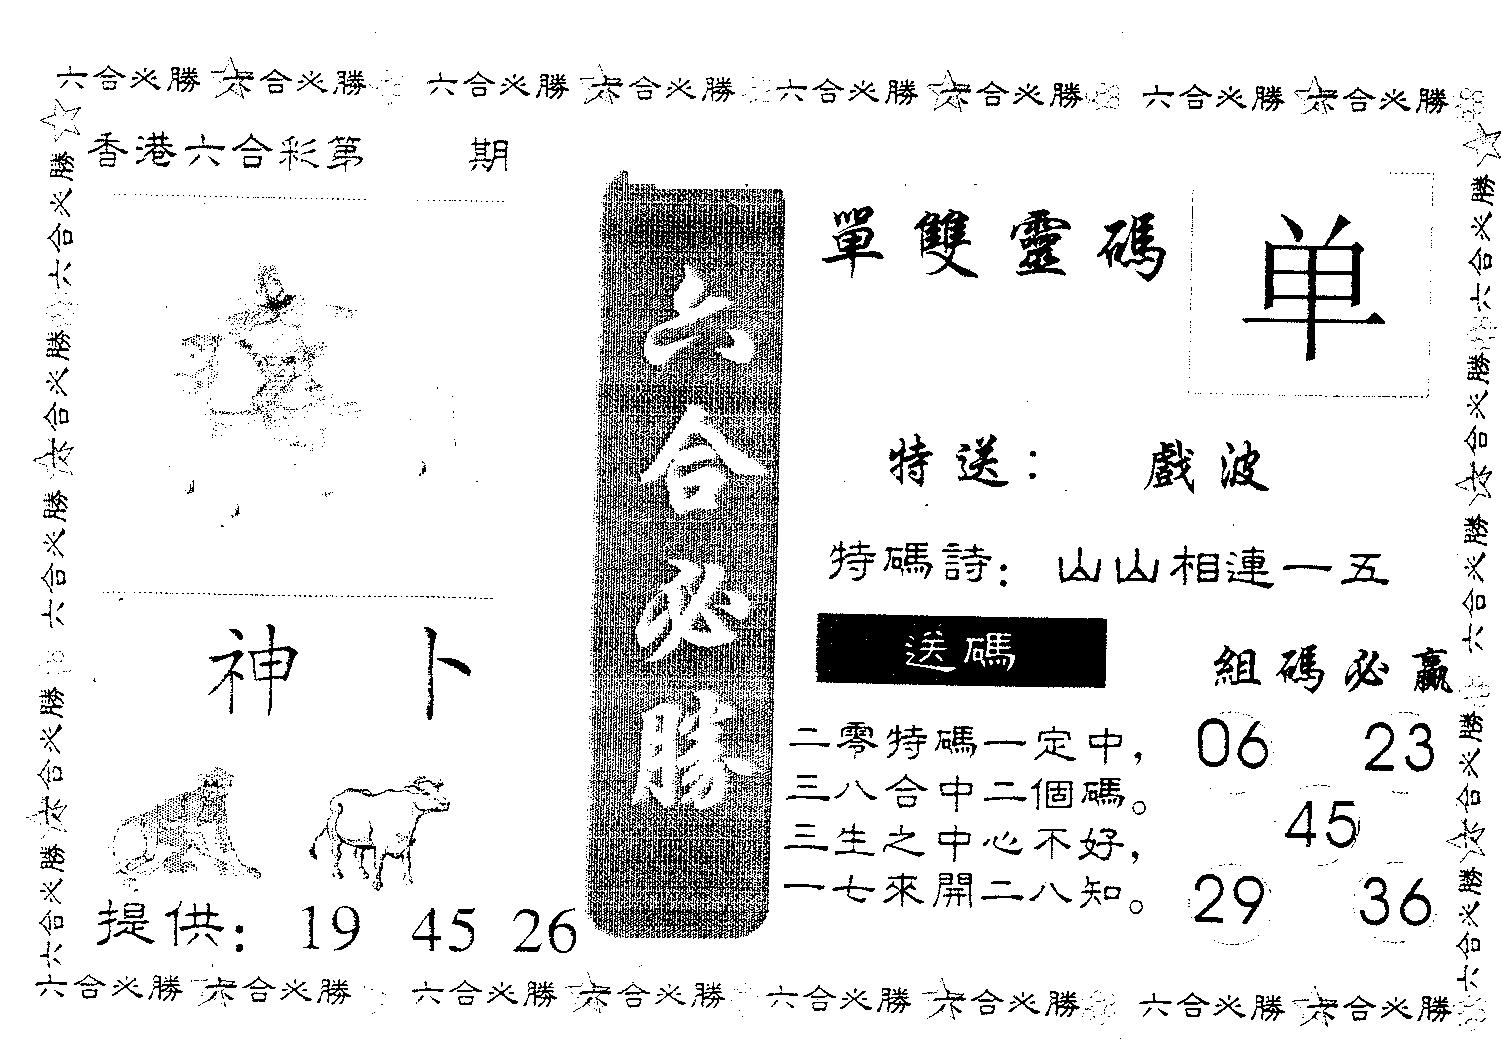 六合必勝 六合必勝 六合必勝 六合必勝 六合必勝 六合必勝 六合必勝 六合必勝
六合必勝 六合必勝 六合必勝 六合必勝 六合必勝
香港六合彩第 期
神 卜
提供: 19 45 26
六合必勝
單雙靈碼
单
特送: 戲波
特碼詩: 山山相連一五
送碼
二零特碼一定中,
三八合中二個碼。
三生之中心不好,
一七來開二八知。
組碼必贏
06 23
45
29 36
六合必勝 六合必勝 六合必勝 六合必勝 六合必勝
六合必勝 六合必勝 六合必勝 六合必勝 六合必勝 六合必勝 六合必勝 六合必勝